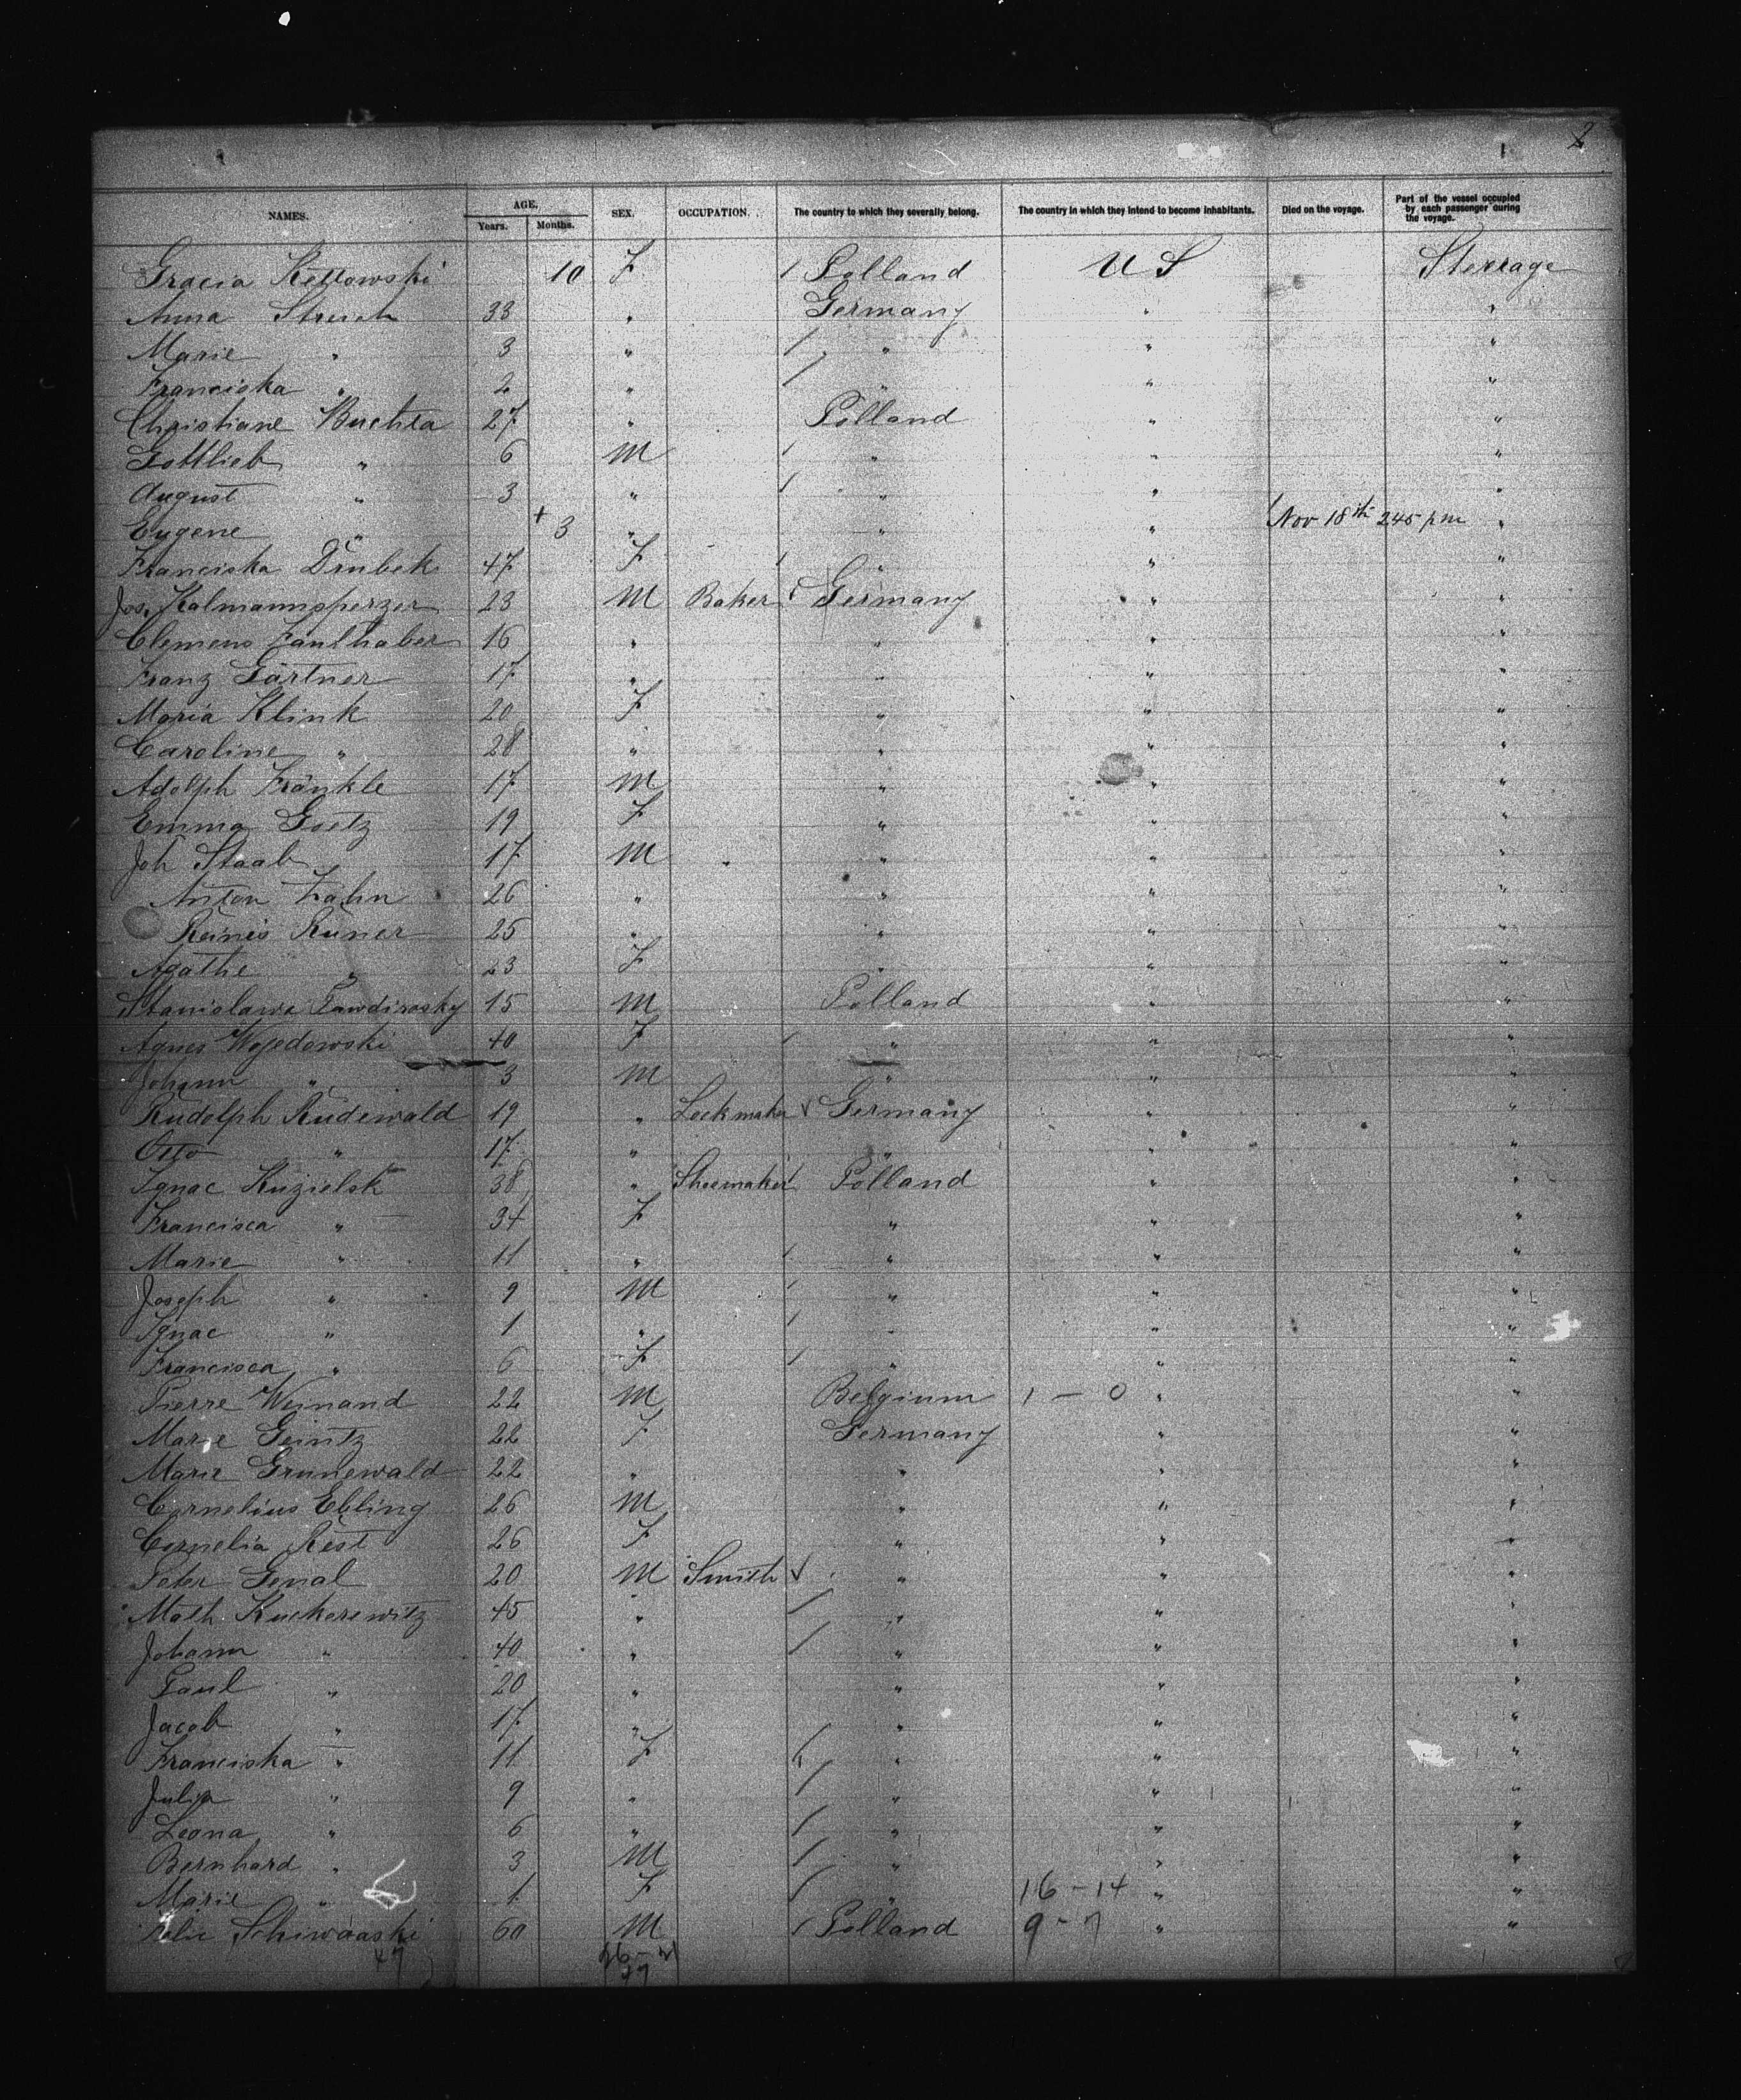 2
NAMES. AGE. SEX. OCCUPATION. The country to which they severally belong. The country in which they intend to become inhabitants. Died on the voyage. Part of the vessel occupied by each passenger during the voyage.
Years. Months.
Gracia Kettowski 10 F / Polland U S Sterrage
Anna 33 " Germany " "
Marie " 3 " / " " "
Franciska " 2 " / " " "
Christiane Buchta 27 " Polland " "
Gottlieb " 6 M / " " "
August " 3 " / " " "
Eugene " + 3 " " " Nov 18th 2.45 pm "
Franciska Drubek 47 F / " " "
Jos. Kalmannsperger 23 M Baker Germany " "
Clemens Faulhaber 16 " " " "
Franz Gärtner 17 " " " "
Maria Klink 20 F " " "
Caroline " 28 " " " "
Adolph Fränkle 17 M " " "
Emma Goetz 19 F " " "
Joh Staab 17 M " " " "
Anton Zahn 26 " " " "
Runer 25 " " " "
Agathe " 23 F " " "
Stanislawe 15 M Polland " "
Agnes Wojedowski 40 F / " " "
Johann " 3 M " " "
Rudolph Rudewald 19 " Lockmaker Germany " "
Otto " 17 " " " "
Ignac Kuzielsk 38 " Shoemaker Polland " "
Francisca " 34 F " " "
Marie " 11 " / " " "
Joseph " 9 M / " " "
Ignac " 1 " / " " "
Francisca " 6 F / " " "
Pierre Weinand 22 M Belgium 1 - 0 " "
Marie Geintz 22 F Germany " "
Marie Grunewald 22 " " " "
Cornelius Ebling 26 M " " "
Cornelia Rest 26 F " " "
Peter Genal 20 M Smith " " "
Math. Kuckorewitz 45 " / " " "
Johann " 40 " / " " "
Paul " 20 " " " "
Jacob " 17 " " " "
Franciska " 11 F / " " "
Julia " 9 " / " " "
Leona " 6 " / " " "
Bernhard " 3 M / " " "
Marie " 1 F / " 16 - 14 " "
Schiwaaski 60 M / Polland 9 - 7 " "
47